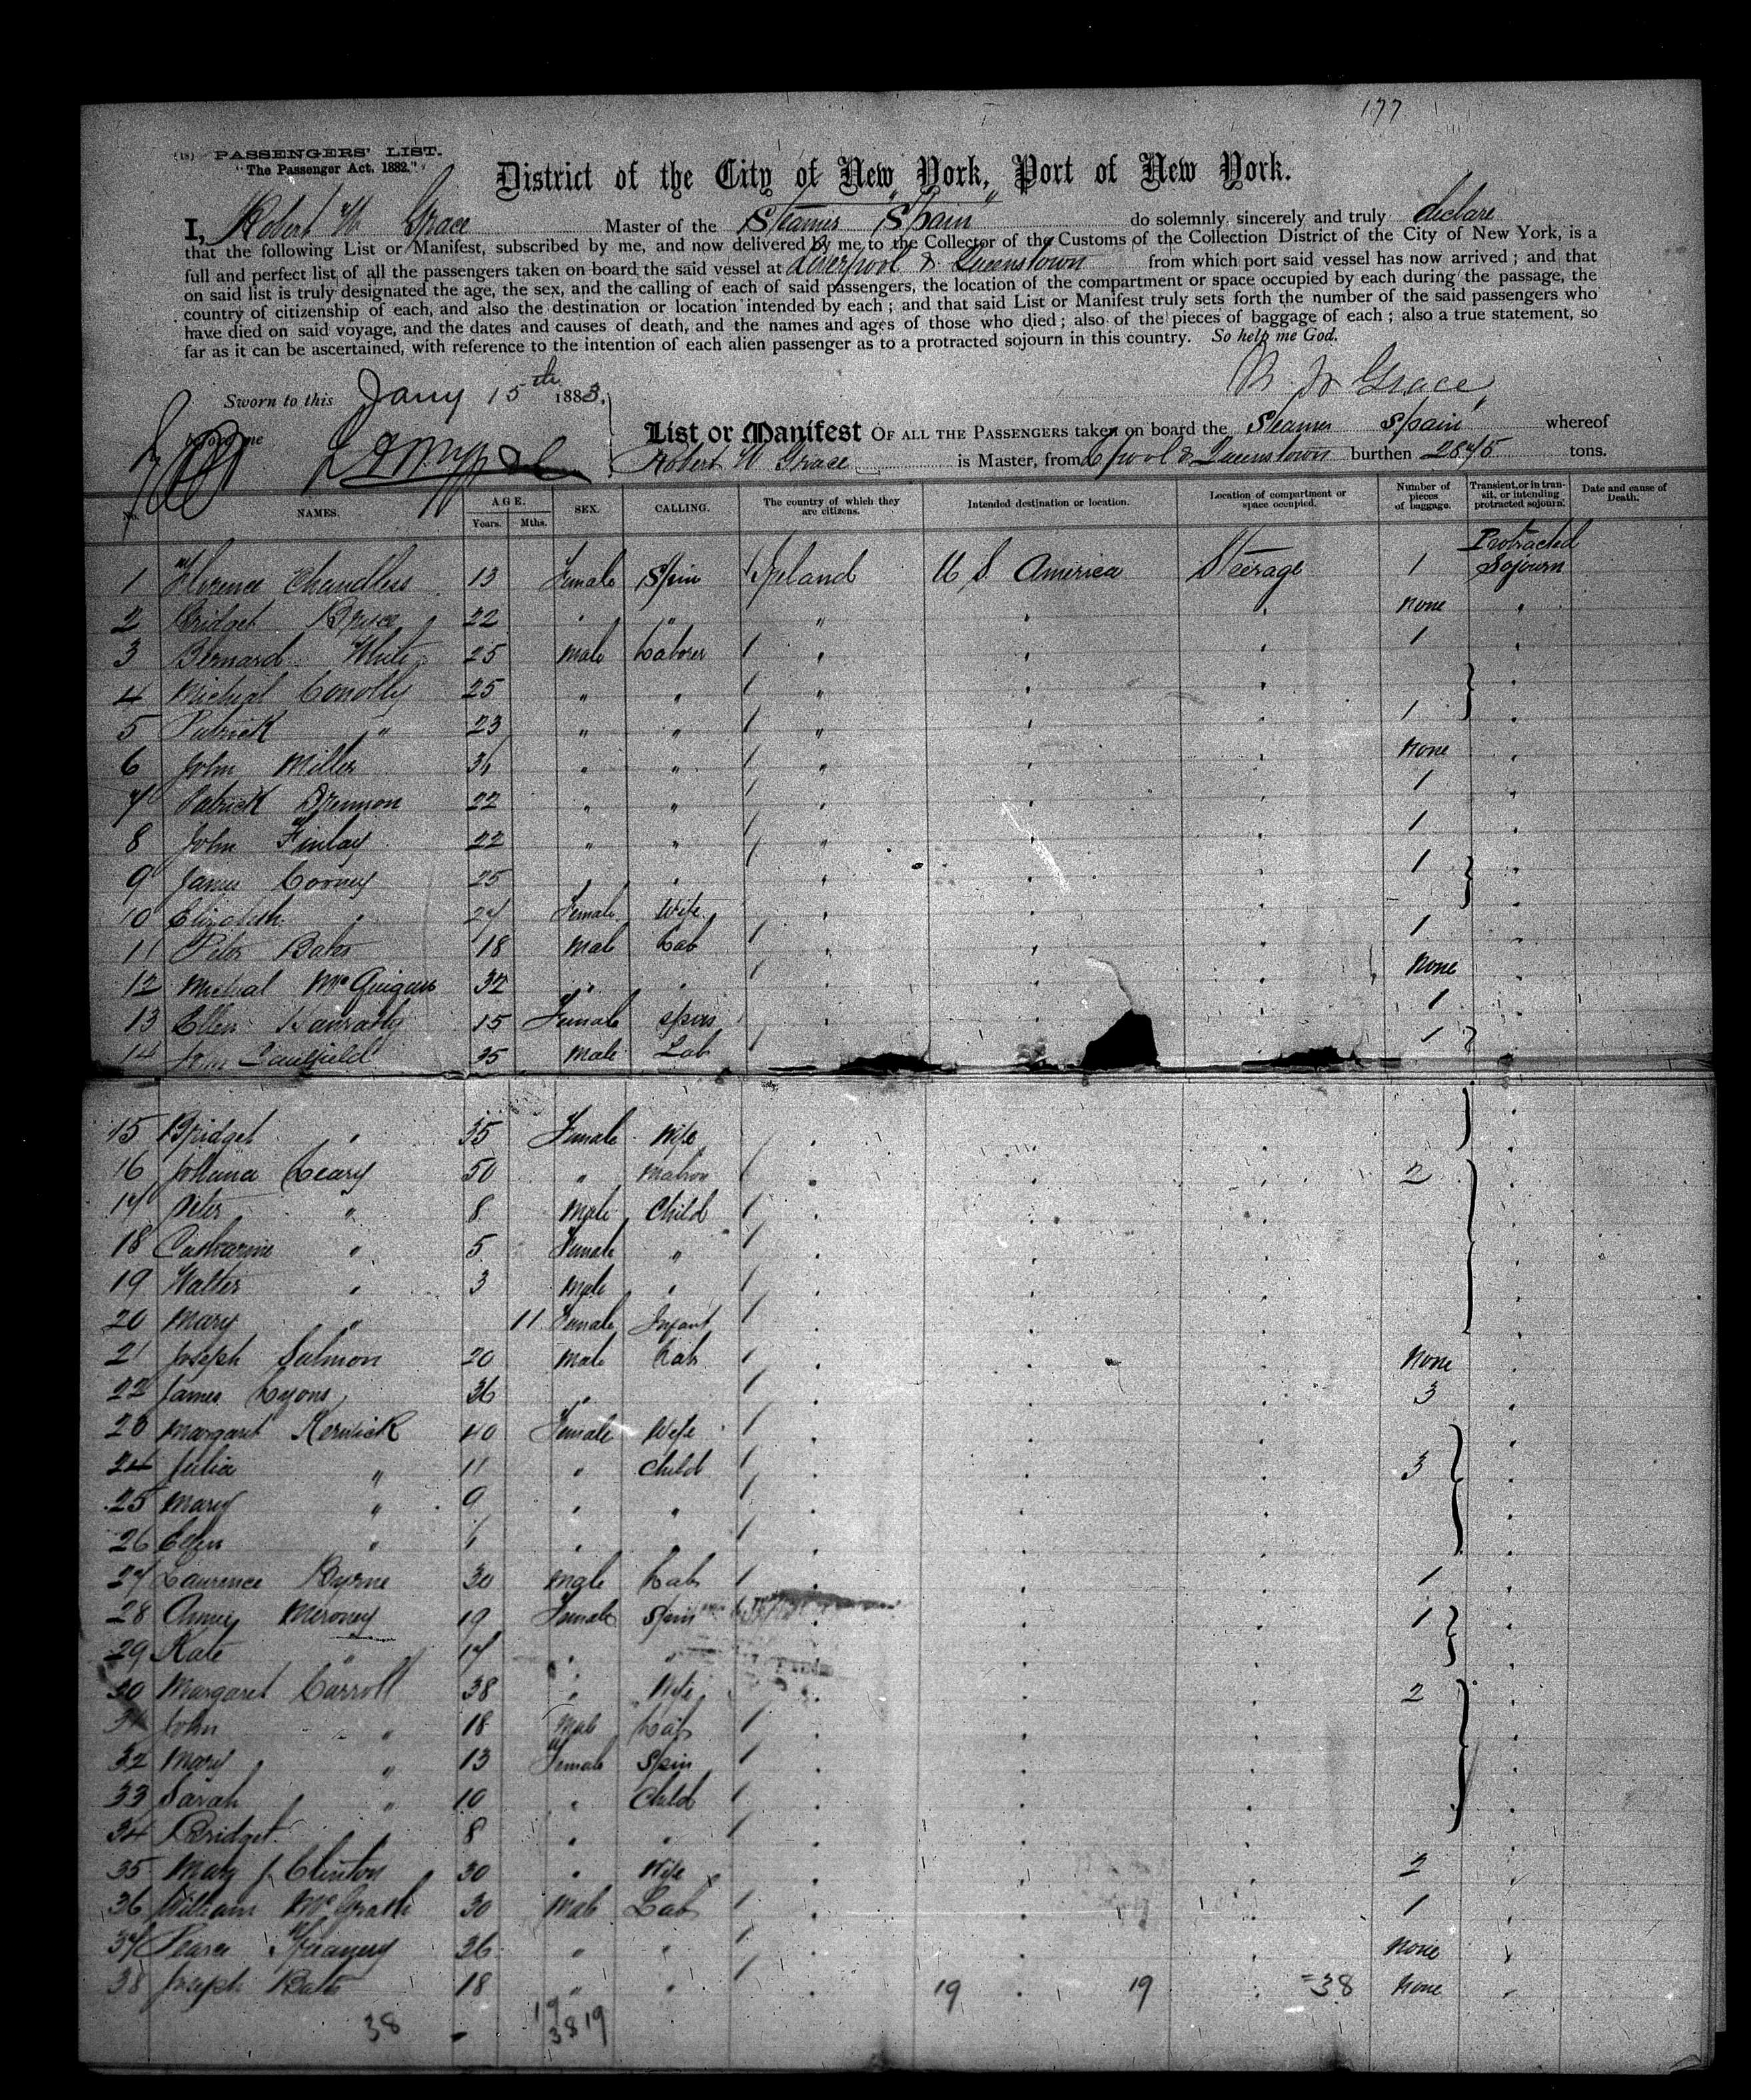 177
(18) PASSENGERS' LIST.
"The Passenger Act, 1882."
District of the City of New York, Port of New York.
I, Robert W Grace Master of the Steamer "Spain" do solemnly, sincerely and truly declare
that the following List or Manifest, subscribed by me, and now delivered by me to the Collector of the Customs of the Collection District of the City of New York, is a
full and perfect list of all the passengers taken on board the said vessel at Liverpool & Queenstown from which port said vessel has now arrived; and that
on said list is truly designated the age, the sex, and the calling of each of said passengers, the location of the compartment or space occupied by each during the passage, the
country of citizenship of each, and also the destination or location intended by each; and that said List or Manifest truly sets forth the number of the said passengers who
have died on said voyage, and the dates and causes of death, and the names and ages of those who died; also of the pieces of baggage of each; also a true statement, so
far as it can be ascertained, with reference to the intention of each alien passenger as to a protracted sojourn in this country. So help me God.
R W Grace
Sworn to this Jany 15th 1883.
before me
List or Manifest OF ALL THE PASSENGERS taken on board the Steamer Spain" whereof
Robert W Grace is Master, from L'pool & Queenstown burthen 2875 tons.
No. NAMES. AGE. Years. Mths. SEX. CALLING. The country of which they are citizens. Intended destination or location. Location of compartment or space occupied. Number of pieces of baggage. Transient, or in transit, or intending protracted sojourn. Date and cause of Death.
1 Florence Chandless 13 Female Spin Ireland U S. America Steerage 1 Protracted Sojourn
2 Bridget Bryce 22 " " " " " none "
3 Bernard White 25 male Laborer " " " 1 "
4 Micheal Conolly 25 " " " " " "
5 Patrick " 23 " " " " " 1 "
6 John Miller " " " " " none "
7 Patrick Drennon 22 " " " " " 1 "
8 John Finlay 22 " " " " " 1 "
9 James Cooney 25 " " " " " 1 "
10 Elizabeth " 27 Female Wife " " " "
11 Peter Bates 18 Male Lab " " " 1 "
12 Micheal 32 " " " " " none "
13 Ellen Hanratty 15 Female Spin " " " 1 "
14 John Caulfield 35 Male Lab 1 "
15 Bridget " 35 Female Wife " " " "
16 Johana Leary 50 " Matron " " " 2 "
17 Peter " 8 Male Child " " " "
18 Catharine " 5 Female " " " " "
19 Walter " 3 Male " " " " "
20 Mary " 11 Female Infant " " " "
21 Joseph Salmon 20 Male Lab " " " None "
22 James Lyons 36 " " " " 3 "
23 Margaret Kerwick 40 Female Wife " " " "
24 Julia " 11 " Child " " " 3 "
25 Mary " 9 " " " " " "
26 Ellen " " " " " " "
27 Laurence Byrne 30 Male Lab " " " 1 "
28 Annie Meroney 19 Female Spin " " " 1 "
29 Kate " 17 " " " " " "
30 Margaret Carroll 38 " Wife " " " 2 "
31 John " 18 Male Lab " " " "
32 Mary " 13 Female Spin " " " "
33 Sarah " 10 " Child " " " "
34 Bridget 8 " " " " " "
35 Mary J Clinton 30 " Wife " " " 2 "
36 William McGrath 30 Male Lab " " " 1 "
37 36 " " " " " None "
38 Joseph Bates 18 " " " 19 " 19 " =38 None "
38 19
38 19